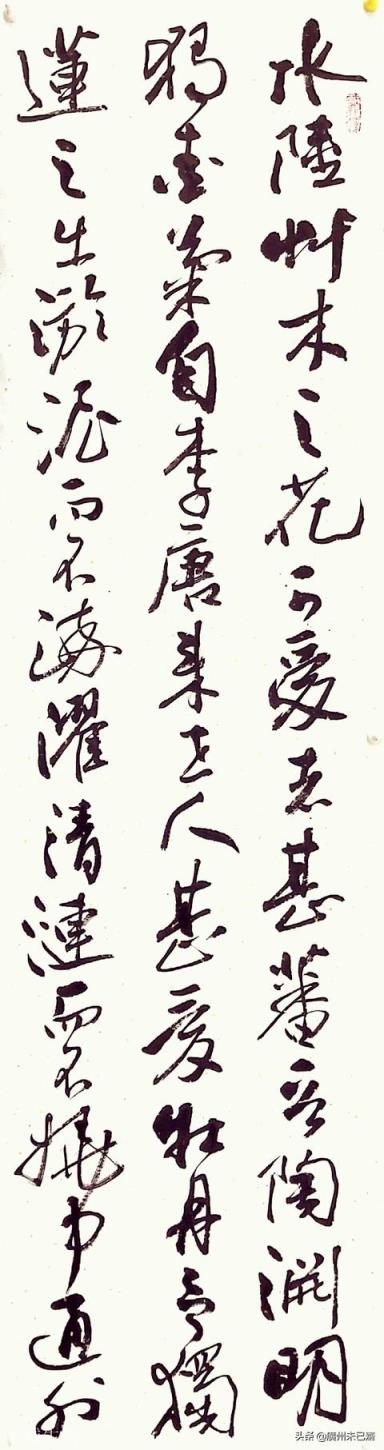 水陸艸木之花可愛者甚蕃晉陶淵明
獨愛菊自李唐来世人甚愛牡丹予獨
蓮之出淤泥而不染濯清漣而不妖中通外
头条 @廣州未已齋